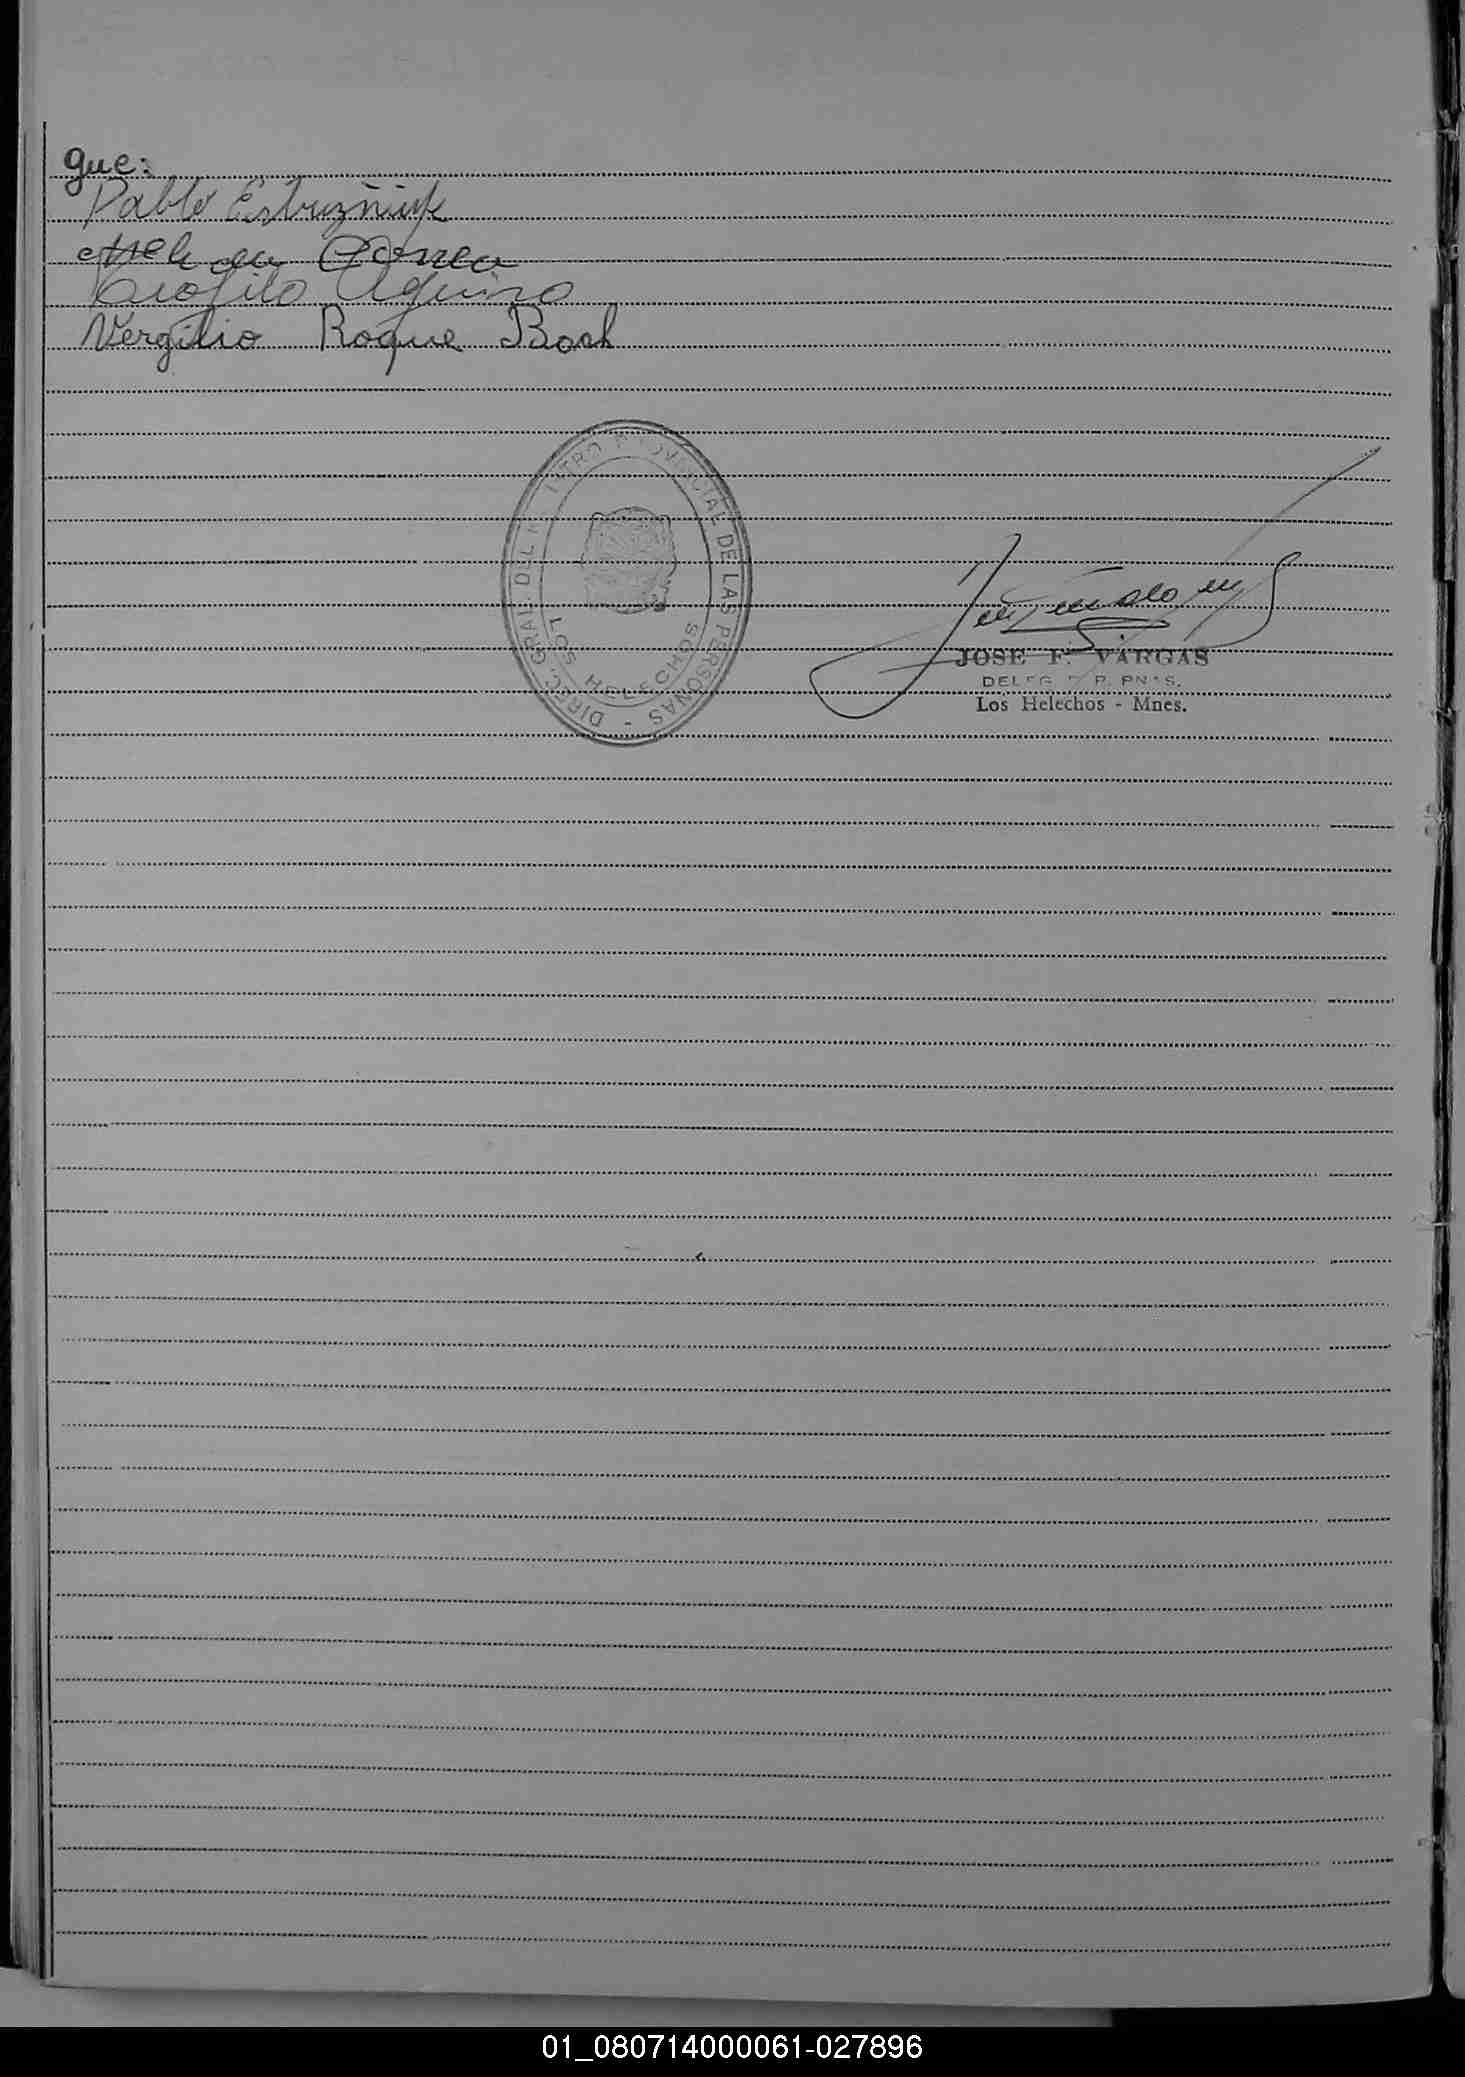 gue:
Pablo
Correa
Teofilo Aquino
Vergilio Roque Bach
DIREC. GRAL. DEL REGISTRO PROVINCIAL DE LAS PERSONAS -
LOS HELECHOS
JOSE F. VARGAS
Los Helechos - Mnes.
01_080714000061-027896